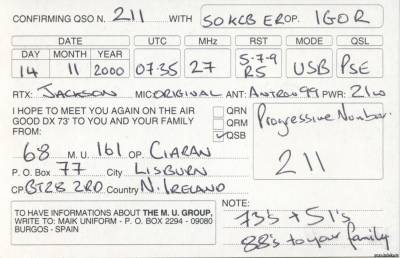 CONFIRMING QSO N. 211 WITH 50KCBER OP. IGOR
DATE UTC MHz RST MODE QSL
DAY MONTH YEAR
14 11 2000 07.35 27 5-7-9 R5 USB PSE
RTX: JACKSON MIC: ORIGINAL ANT: ANTRON 99 PWR: 21W
I HOPE TO MEET YOU AGAIN ON THE AIR
GOOD DX 73' TO YOU AND YOUR FAMILY
FROM:
QRN
QRM
QSB
Progressive Number.
211
68 M. U. 161 OP. CIARAN
P. O. Box 77 City LISBURN
CP BT28 2RD Country N. IRELAND
TO HAVE INFORMATIONS ABOUT THE M. U. GROUP,
WRITE TO: MAIK UNIFORM - P. O. BOX 2294 - 09080
BURGOS - SPAIN
NOTE:
73's + 51's
88's to your family